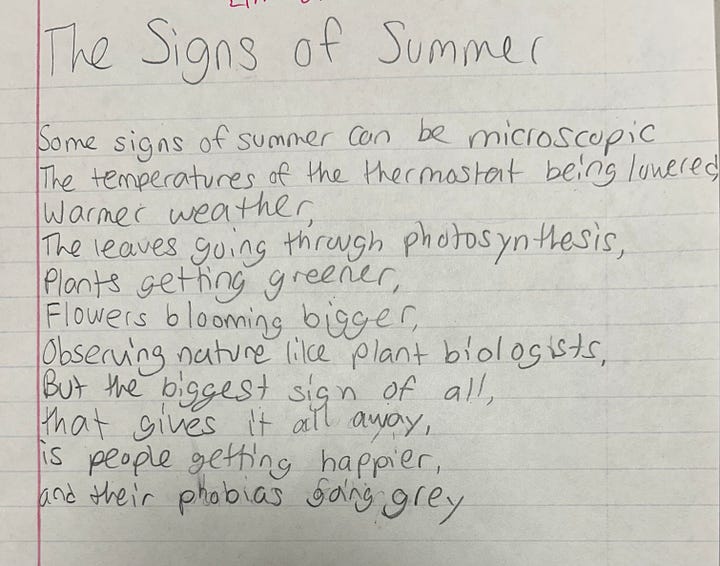 The Signs of Summer
Some signs of summer can be microscopic
The temperatures of the thermostat being lowered
Warmer weather,
The leaves going through photosynthesis,
Plants getting greener,
Flowers blooming bigger,
Observing nature like plant biologists,
But the biggest sign of all,
that gives it all away,
is people getting happier,
and their phobias going grey